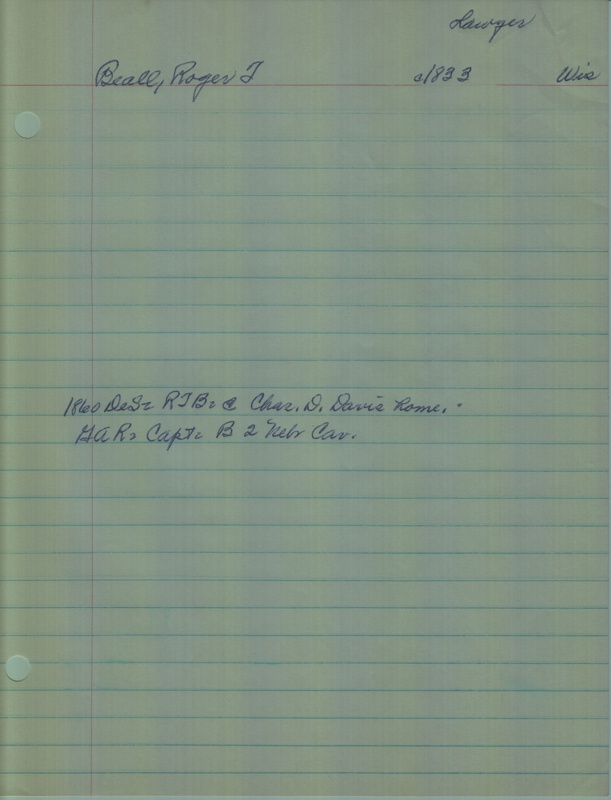 Lawyer
Beall, Roger T c1833 Wis
1860 DeS= RTB= @ Chas. D. Davis home.
GAR= Capt= B 2 Nebr Cav.